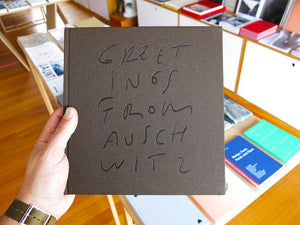 GREET
INGS
FROM
AUSCH
WITZ